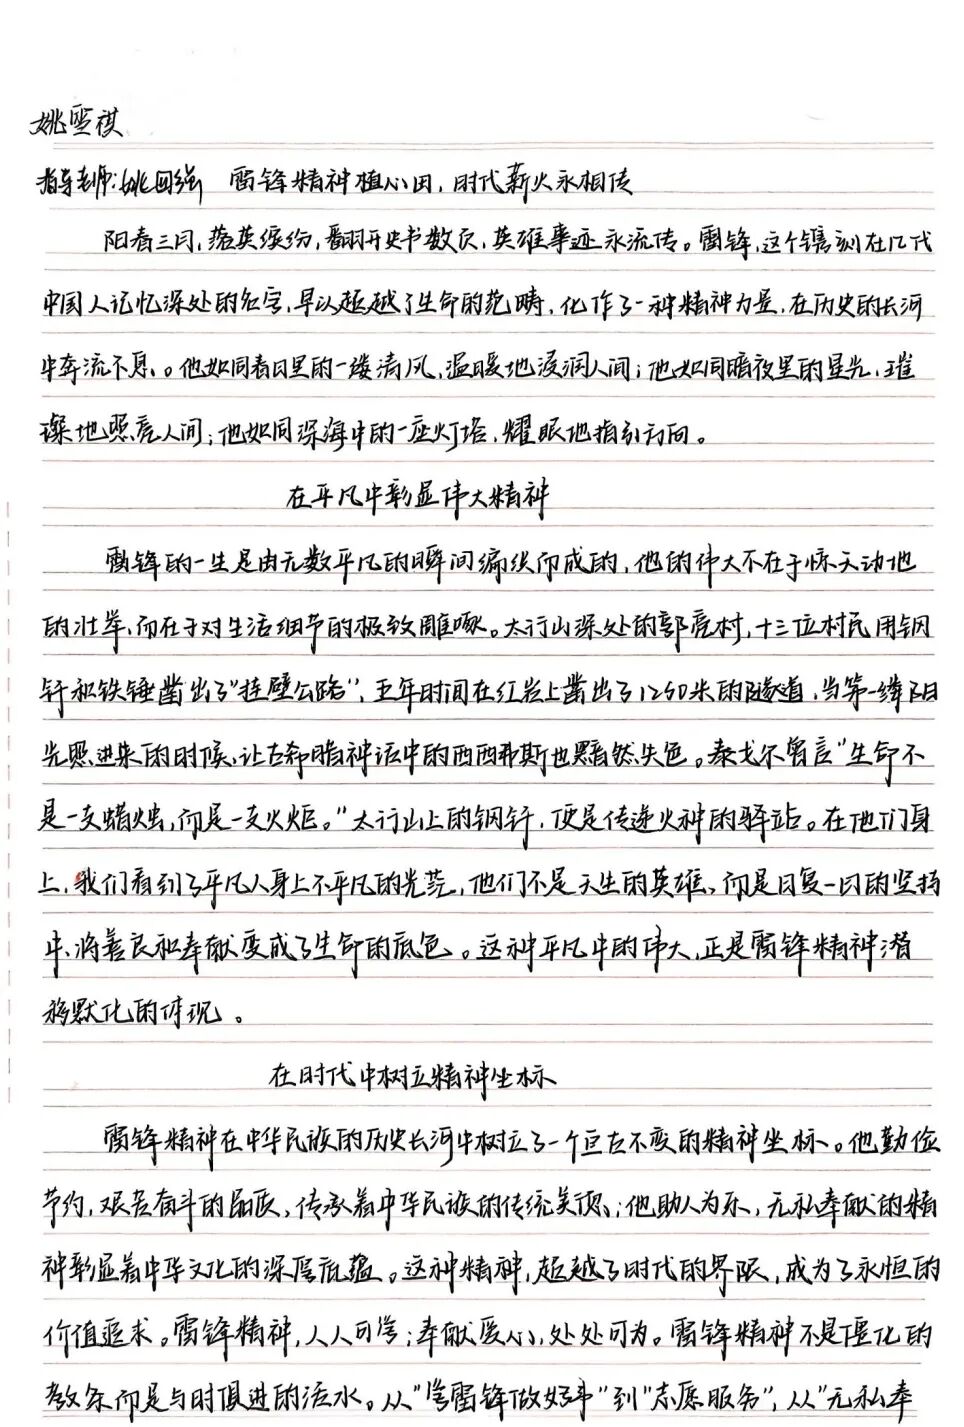 姚雪祺
指导老师:姚国强 雷锋精神植心田,时代薪火永相传
阳春三月,落英缤纷,翻开史书数页,英雄事迹永流传。雷锋,这个镌刻在几代
中国人记忆深处的名字,早以超越了生命的范畴,化作了一种精神力量,在历史的长河
中奔流不息。他如同春日里的一缕清风,温暖地浸润人间;他如同暗夜里的星光,璀
璨地照亮人间;他如同深海中的一座灯塔,耀眼地指引方向。
在平凡中彰显伟大精神
雷锋的一生是由无数平凡的瞬间编织而成的,他的伟大不在于惊天动地
的壮举,而在于对生活细节的极致雕啄。太行山深处的郭亮村,十三位村民用钢
钎和铁锤凿出了“挂壁公路”,五年时间在红岩上凿出了1250米的隧道,当第一缕阳
光照进来的时候,让古希腊神话中的西西弗斯也黯然失色。泰戈尔曾言“生命不
是一支蜡烛,而是一支火炬。”太行山上的钢钎,便是传递火种的驿站。在他们身
上,我们看到了平凡人身上不平凡的光芒,他们不是天生的英雄,而是日复一日的坚持
中,将善良和奉献变成了生命的底色。这种平凡中的伟大,正是雷锋精神潜
移默化的体现。
在时代中树立精神坐标
雷锋精神在中华民族的历史长河中树立了一个亘古不变的精神坐标。他勤俭
节约,艰苦奋斗的品质,传承着中华民族的传统美德;他助人为乐,无私奉献的精
神彰显着中华文化的深厚底蕴。这种精神,超越了时代的界限,成为了永恒的
价值追求。雷锋精神,人人可学;奉献爱心,处处可为。雷锋精神不是僵化的
教条而是与时俱进的活水。从“学雷锋做好事”到“志愿服务”,从“无私奉